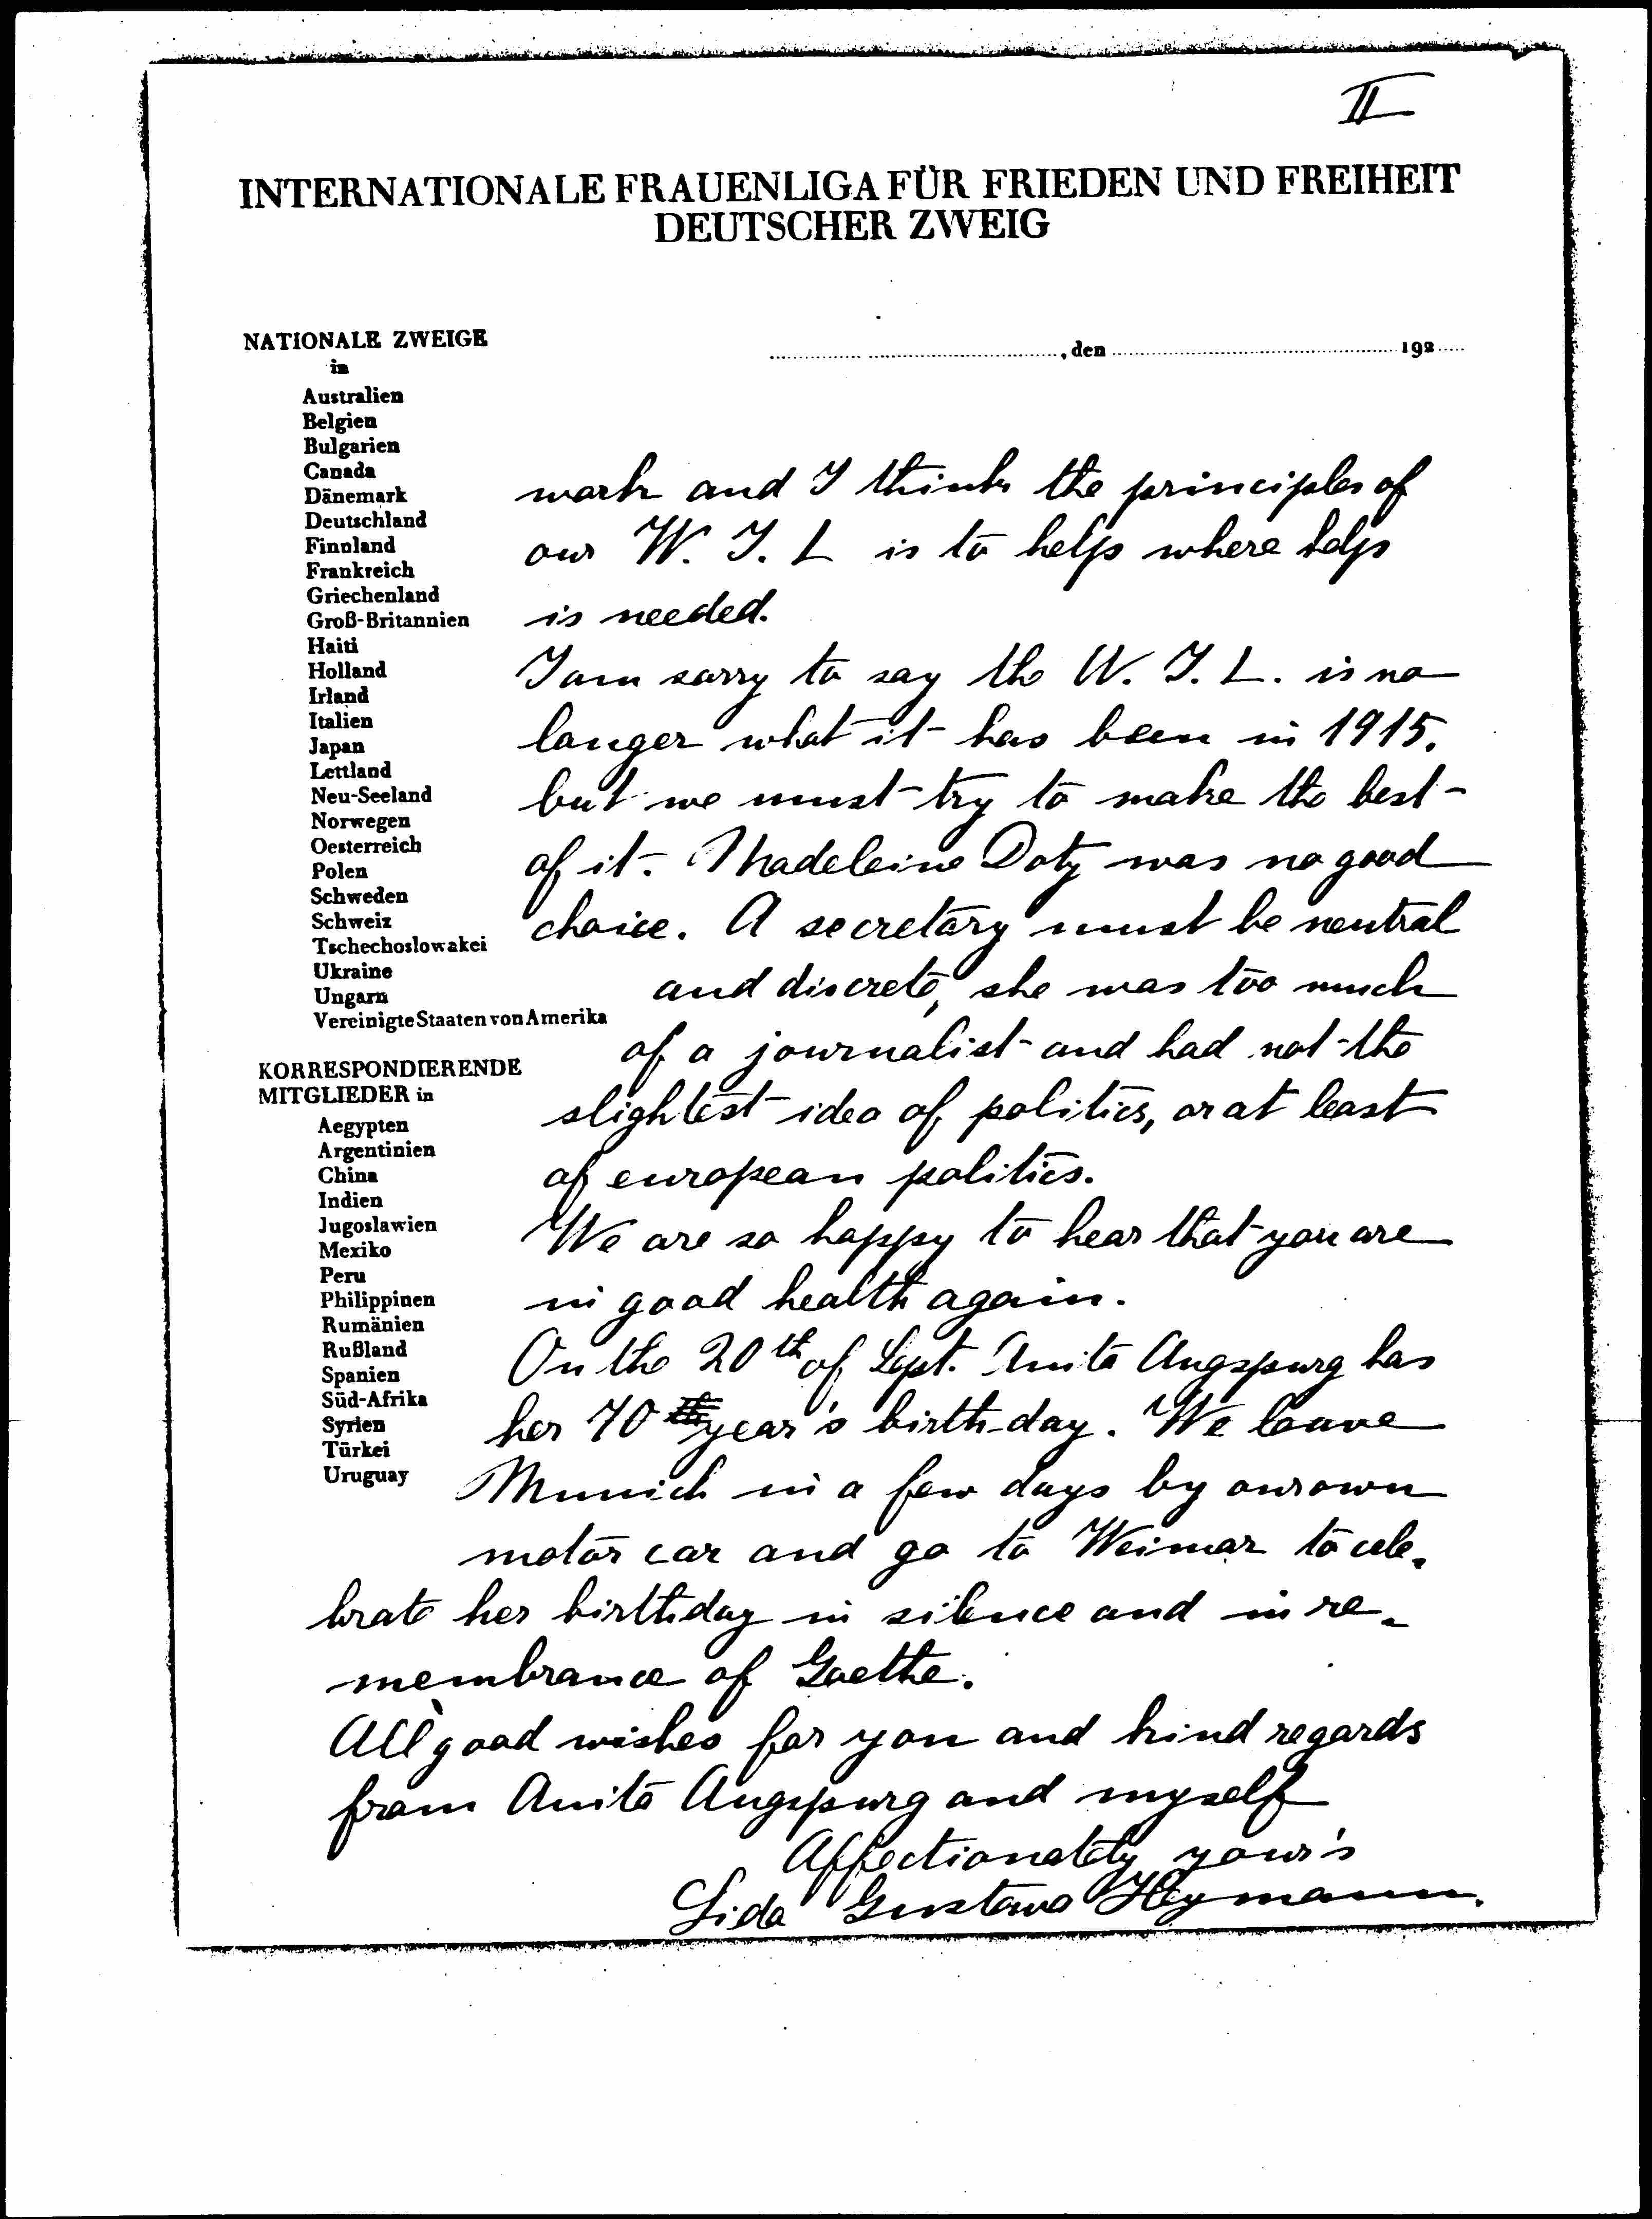 II
INTERNATIONALE FRAUENLIGA FÜR FRIEDEN UND FREIHEIT
DEUTSCHER ZWEIG
NATIONALE ZWEIGE
in
Australien
Belgien
Bulgarien
Canada
Dänemark
Deutschland
Finnland
Frankreich
Griechenland
Groß-Britannien
Haiti
Holland
Irland
Italien
Japan
Lettland
Neu-Seeland
Norwegen
Oesterreich
Polen
Schweden
Schweiz
Tschechoslowakei
Ukraine
Ungarn
Vereinigte Staaten von Amerika
KORRESPONDIERENDE
MITGLIEDER in
Aegypten
Argentinien
China
Indien
Jugoslawien
Mexiko
Peru
Philippinen
Rumänien
Rußland
Spanien
Süd-Afrika
Syrien
Türkei
Uruguay
, den 192
work and I think the principles of
our W. I. L is to help where help
is needed.
I am sorry to say the W. I. L. is no
longer what it has been in 1915,
but we must try to make the best
of it. Madeleine Doty was no good
choice. A secretary must be neutral
and discrete, she was too much
of a journalist and had not the
slightest idea of politics, or at least
of european politics.
We are so happy to hear that you are
in good health again.
On the 20th of Sept. Anita Augspurg has
her 70 year's birth-day. We leave
Munich in a few days by our own
motor car and go to Weimar to cele-
brate her birthday in silence and in re-
membrance of Goethe.
All good wishes for you and kind regards
from Anita Augspurg and myself
Affectionately your's
Lida Gustava Heymann.